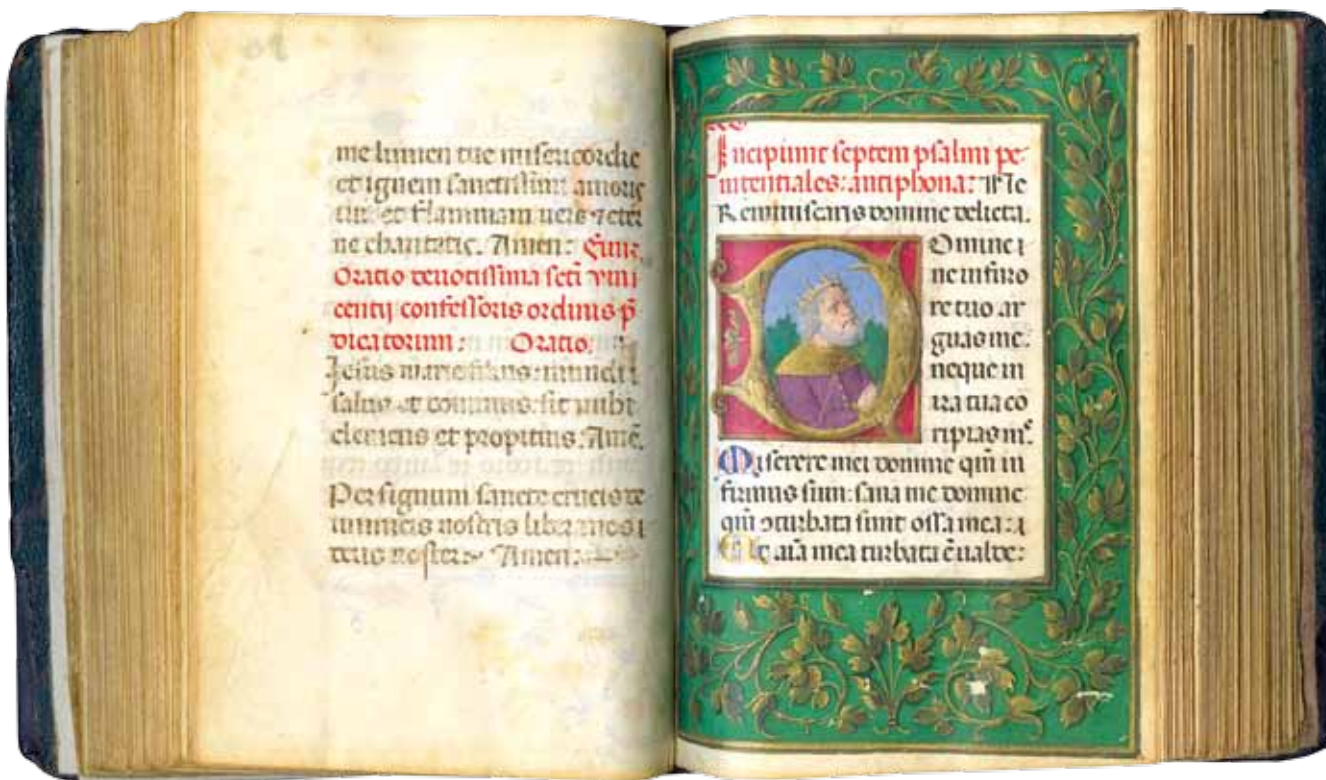 me lumen tue misericordie
et ignem sanctissimi amoris
tui et flammam uere et eter
ne charitatis. Amen:
Oratio deuotissima scti vin
centij confessoris ordinis p̄
dicatorum: Oratio.
Jesus marie filius: mundi
salus et dominus: sit mihi
clemens et propitius. Amē.
Per signum sancte crucis de
inimicis nostris libera nos
deus noster Amen:
Incipiunt septem psalmi pe-
nitentiales: antiphona: Ne
Reminiscaris domine delicta.
Domine
ne in furo
re tuo ar
guas me:
neque in
ira tua co
ripias me
Miserere mei domine qm̄ in
firmus sum: sana me domine
qm̄ ↄturbata sunt ossa mea:
Et aīa mea turbata ē ualde: